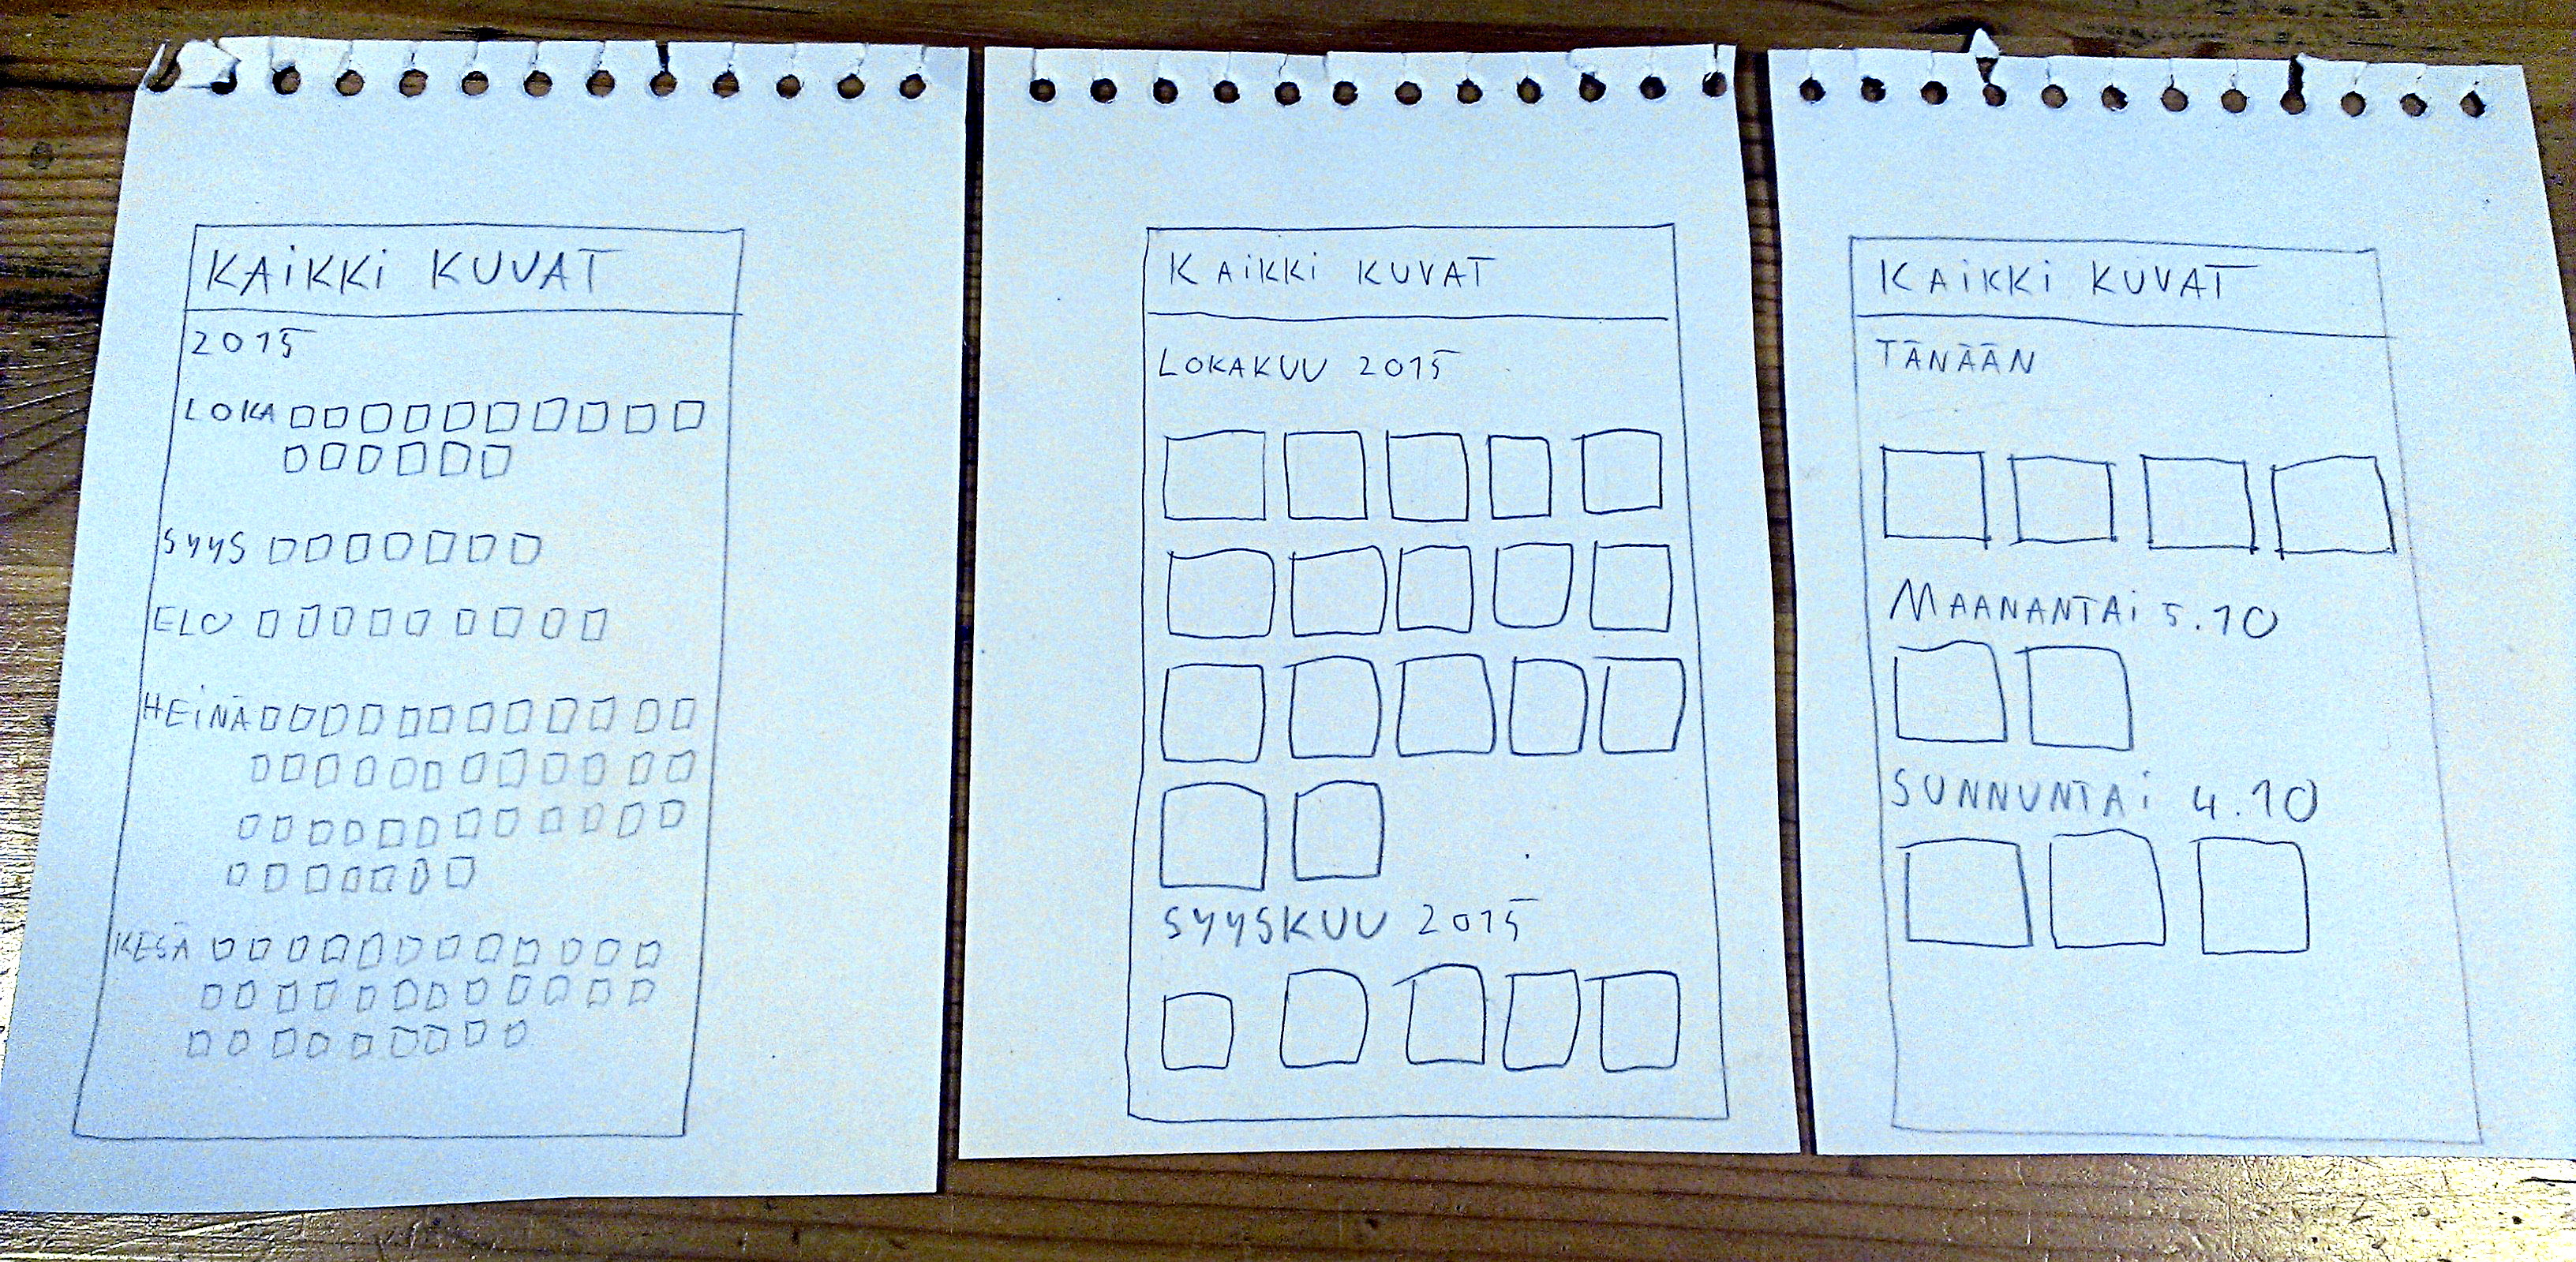 KAiKKi KUVAT
2015
LOKA
SYYS
ELO
HEiNÄ
KESÄ
KAiKKi KUVAT
LOKAKUU 2015
SYYSKUU 2015
KAiKKi KUVAT
TÄNÄÄN
MAANANTAi 5.10
SUNNUNTAi 4.10